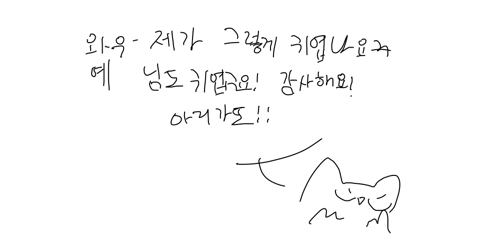 와우- 제가 그렇게 귀엽나요ㅋ
예 님도 귀엽구요! 감사해요!
아리가또!!